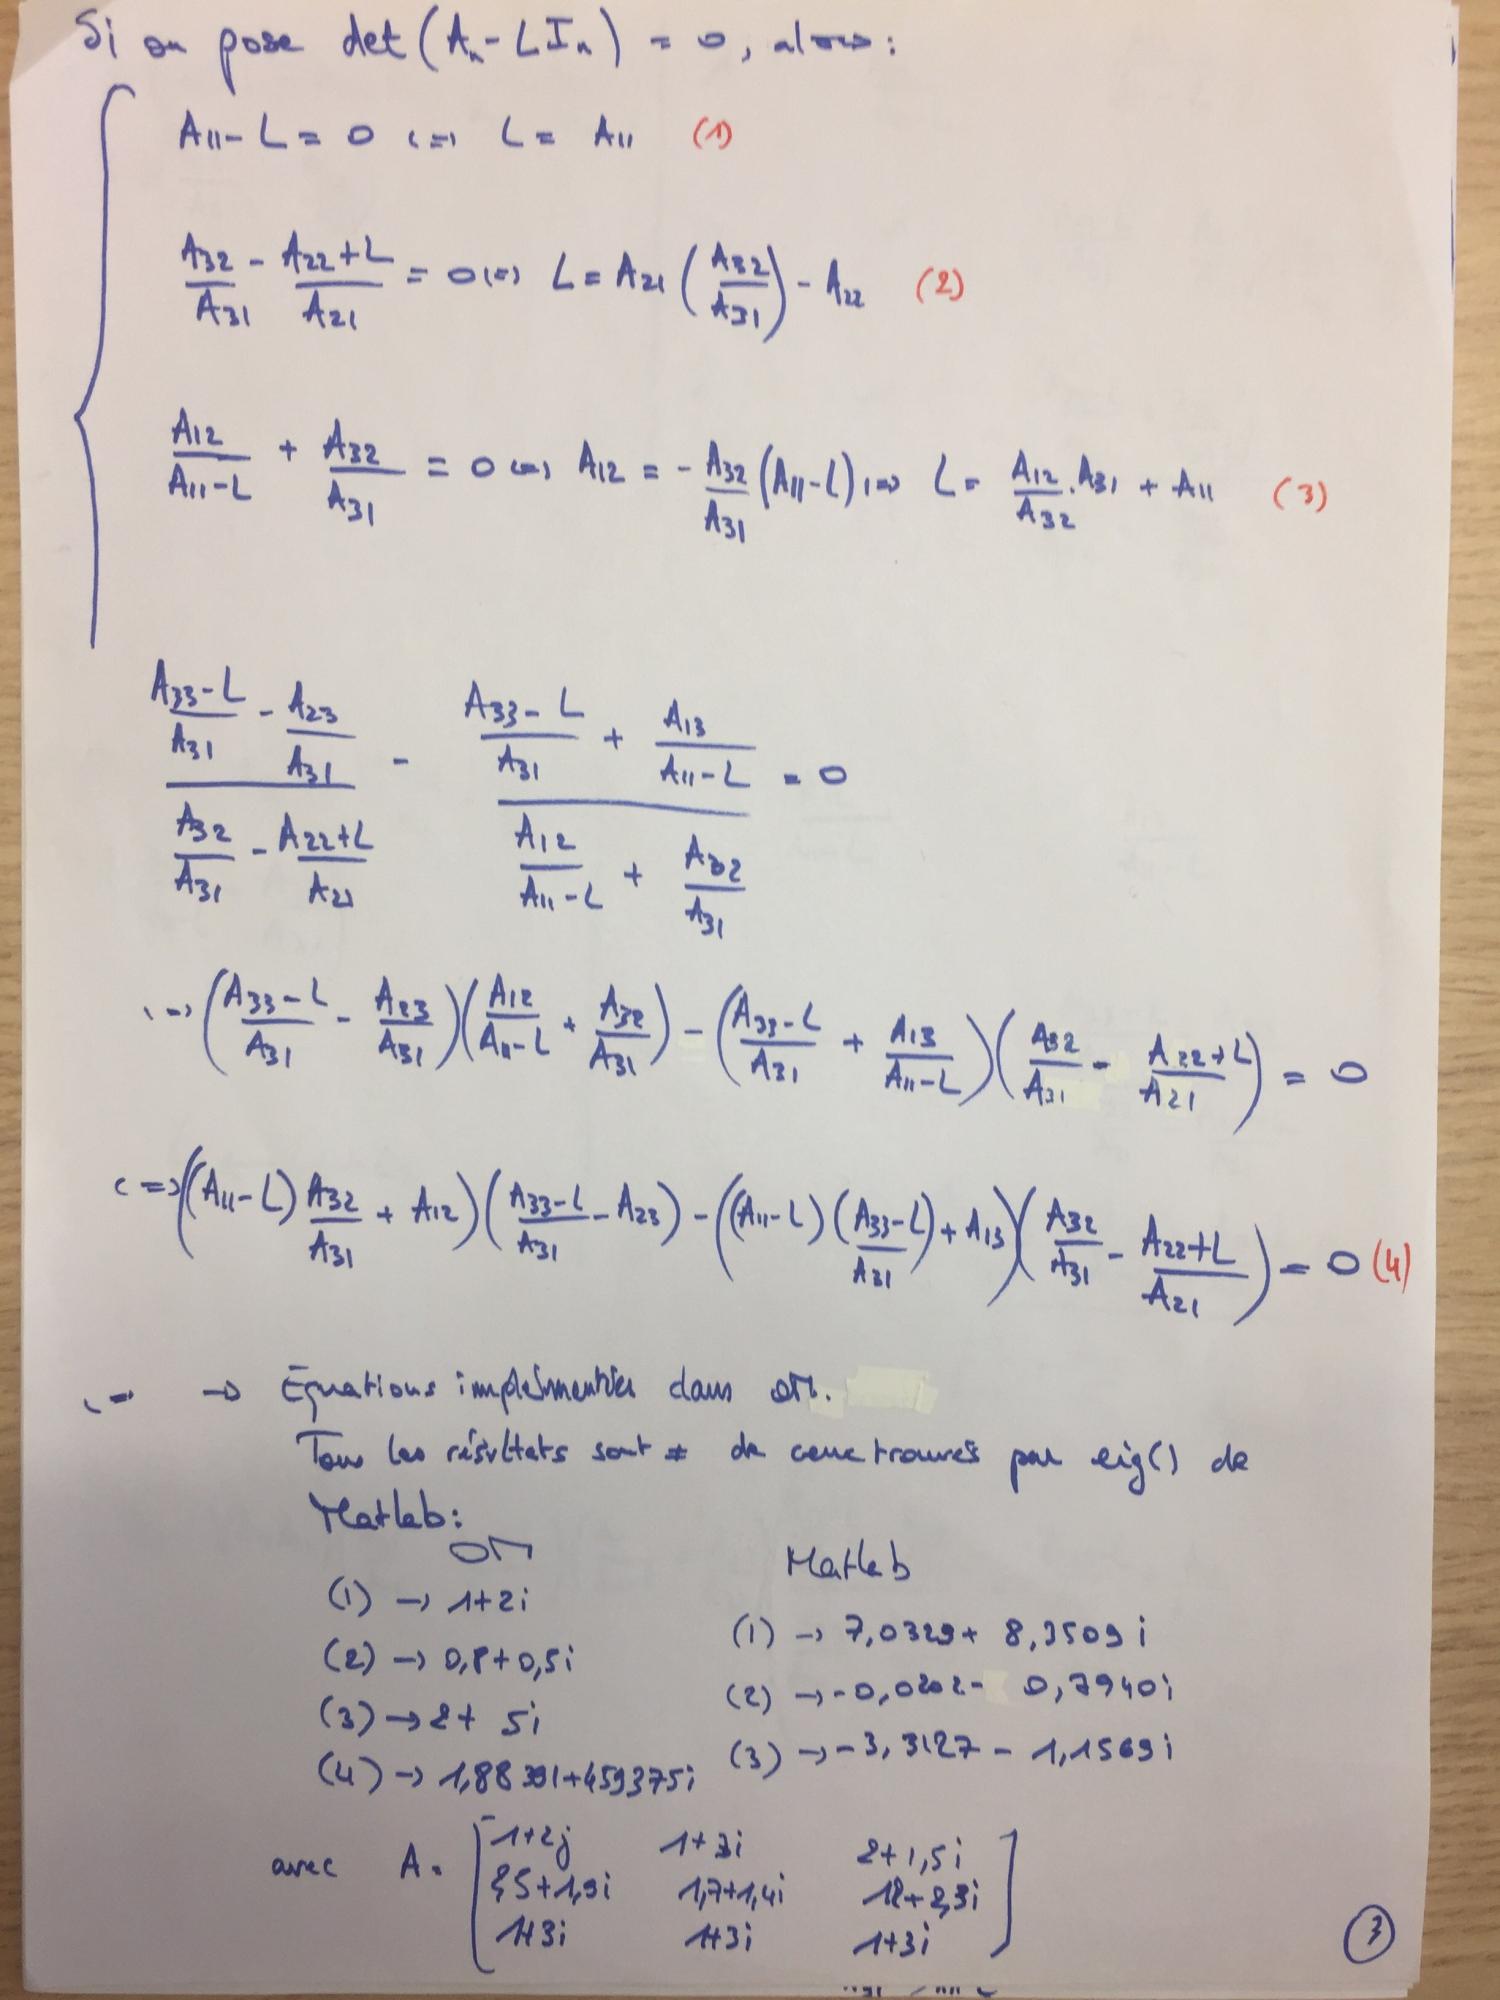 Si on pose det(Aₙ - LIₙ) = 0, alors :
A11 - L = 0 <=> L = A11 (1)
A32/A31 - (A22+L)/A21 = 0 <=> L = A21 (A32/A31) - A22 (2)
A12/(A11-L) + A32/A31 = 0 <=> A12 = - A32/A31 (A11-L) <=> L = A12/A32 . A31 + A11 (3)
((A33-L)/A31 - A23/A31) / (A32/A31 - (A22+L)/A21) - ((A33-L)/A31 + A13/(A11-L)) / (A12/(A11-L) + A32/A31) = 0
<=> ((A33-L)/A31 - A23/A31)(A12/(A11-L) + A32/A31) - ((A33-L)/A31 + A13/(A11-L))(A32/A31 - (A22+L)/A21) = 0
<=> ((A11-L) A32/A31 + A12)((A33-L)/A31 - A23) - ((A11-L)((A33-L)/A31) + A13)(A32/A31 - (A22+L)/A21) = 0 (4)
<=> → Equations implémentées dans OM.
Tous les résultats sont ≠ de ceux trouvés par eig() de
Matlab :
OM Matlab
(1) → 1+2i (1) → 7,0329+ 8,3509i
(2) → 0,8+0,5i (2) → -0,0202- 0,7940i
(3) → 2+ 5i (3) → -3,3127 - 1,1569i
(4) → 1,88391+459375i
avec A = [1+2j 1+3i 2+1,5i
1,7+1,4i
1+3i 1+3i 1+3i]
3